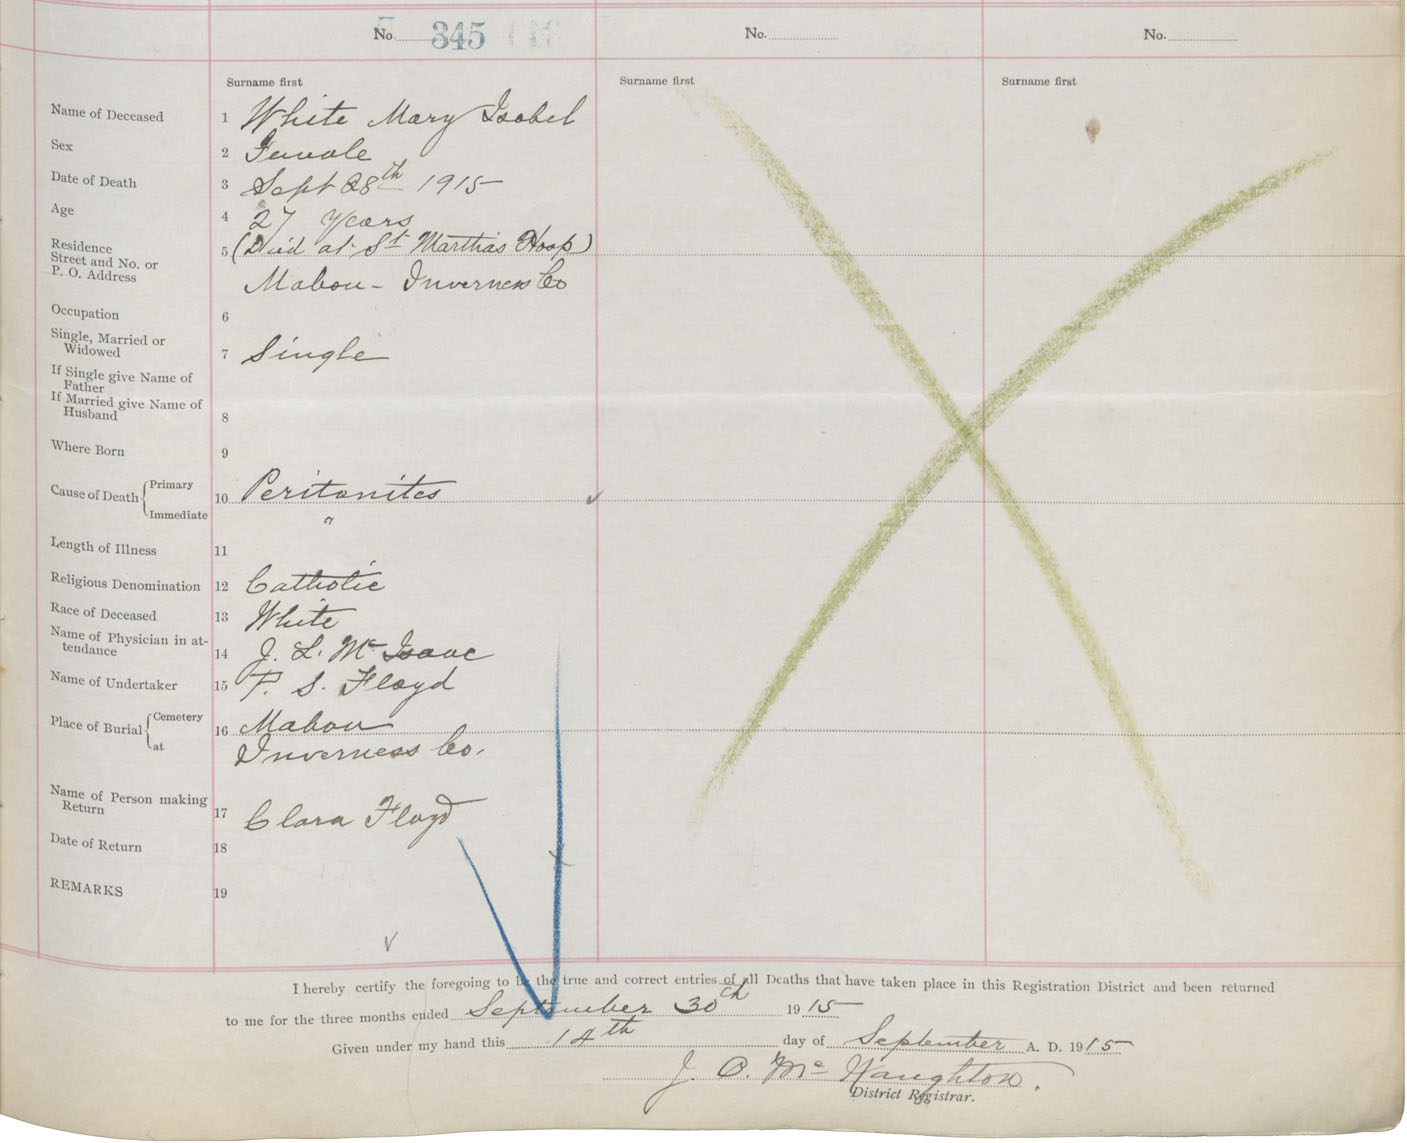 No. 345 No. No.
Surname first Surname first Surname first
Name of Deceased 1 White Mary Isabel
Sex 2 Female
Date of Death 3 Sept 28th 1915
Age 4 27 years
Residence
Street and No. or
P. O. Address
5 (Died at St Martha's Hosp)
Mabou - Inverness Co
Occupation 6
Single, Married or
Widowed 7 Single
If Single give Name of
Father
If Married give Name of
Husband 8
Where Born 9
Cause of Death Primary
10 Peritonites
Immediate "
Length of Illness 11
Religious Denomination 12 Catholic
Race of Deceased 13 White
Name of Physician in at-
tendance 14 J. L. Mc Isaac
Name of Undertaker 15 P. S. Floyd
Place of Burial Cemetery
16 Mabou
at Inverness Co.
Name of Person making
Return 17 Clara Floyd
Date of Return 18
REMARKS 19
I hereby certify the foregoing to be the true and correct entries of all Deaths that have taken place in this Registration District and been returned
to me for the three months ended September 30th 1915
Given under my hand this 14th day of September A. D. 1915
J. C. Mc Naughton.
District Registrar.